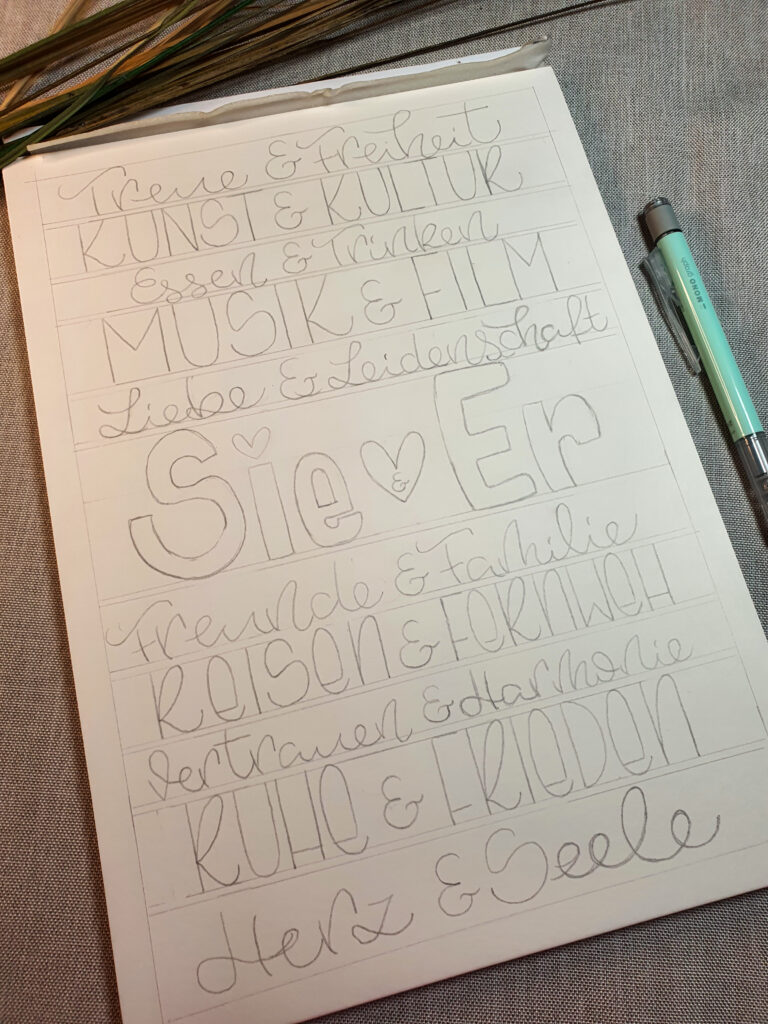 Treue & Freiheit
KUNST & KULTUR
Essen & Trinken
MUSIK & FILM
Liebe & Leidenschaft
Sie & Er
Freunde & Familie
ReISeN & FeRNWeH
Vertrauen & Harmonie
RUHe & FRIeDeN
Herz & Seele
MONO graph